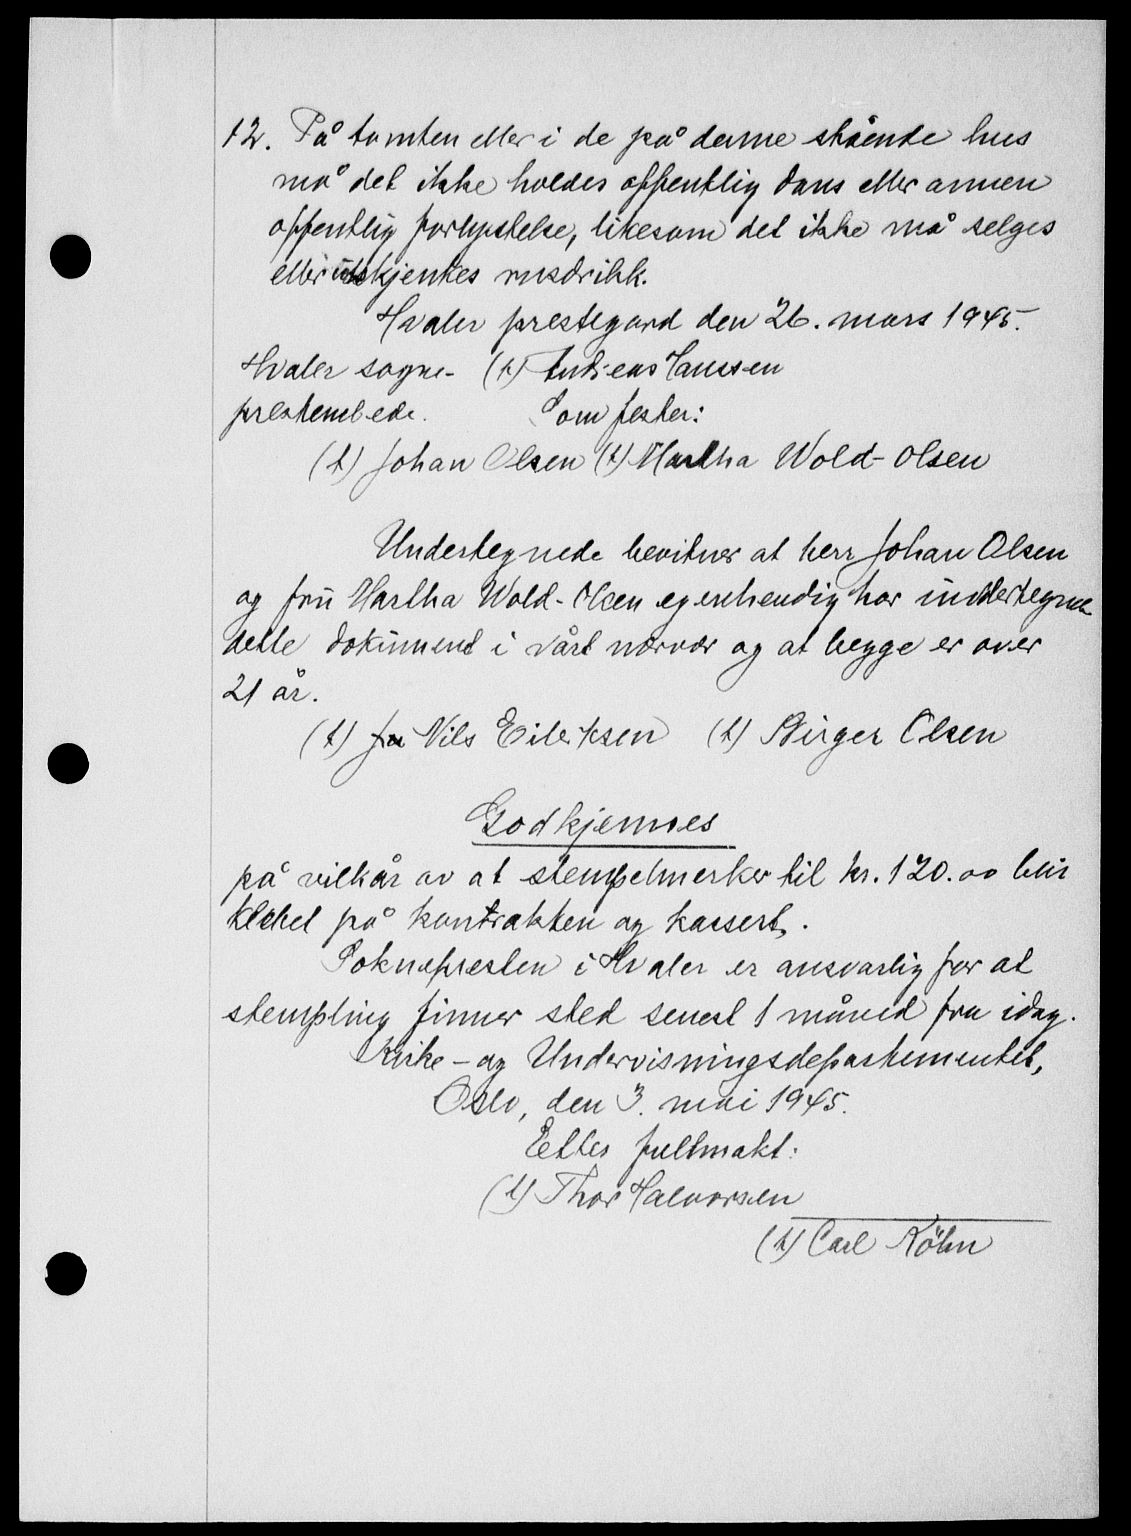 12. På tomten eller i de på denne stående hus
må det ikke holdes offentlig dans eller annen
offentlig forlystelse, likesom det ikke må selges
eller utskjenkes rusdrikk.
Hvaler prestegard den 26. mars 1945.
Hvaler sogne- (t) Andreas Hanssen
prestembede. Som fester:
(t) Johan Olsen (t) Martha Wold-Olsen
Undertegnede bevitner at herr Johan Olsen
og fru Martha Wold-Olsen egenhendig har undertegnet
dette dokument i vårt nærvær og at begge er over
21 år.
(t) Nils Eileriksen (t) Birger Olsen
Godkjennes
på vilkår av at stempelmerker til kr. 120.00 blir
klebet på kontrakten og kassert.
Soknepresten i Hvaler er ansvarlig for at
stempling finner sted senest 1 måned fra idag.
Kirke- og Undervisningsdepartementet,
Oslo, den 3. mai 1945.
Etter fullmakt:
(t) Thor Halvorsen
(t) Carl Köhn